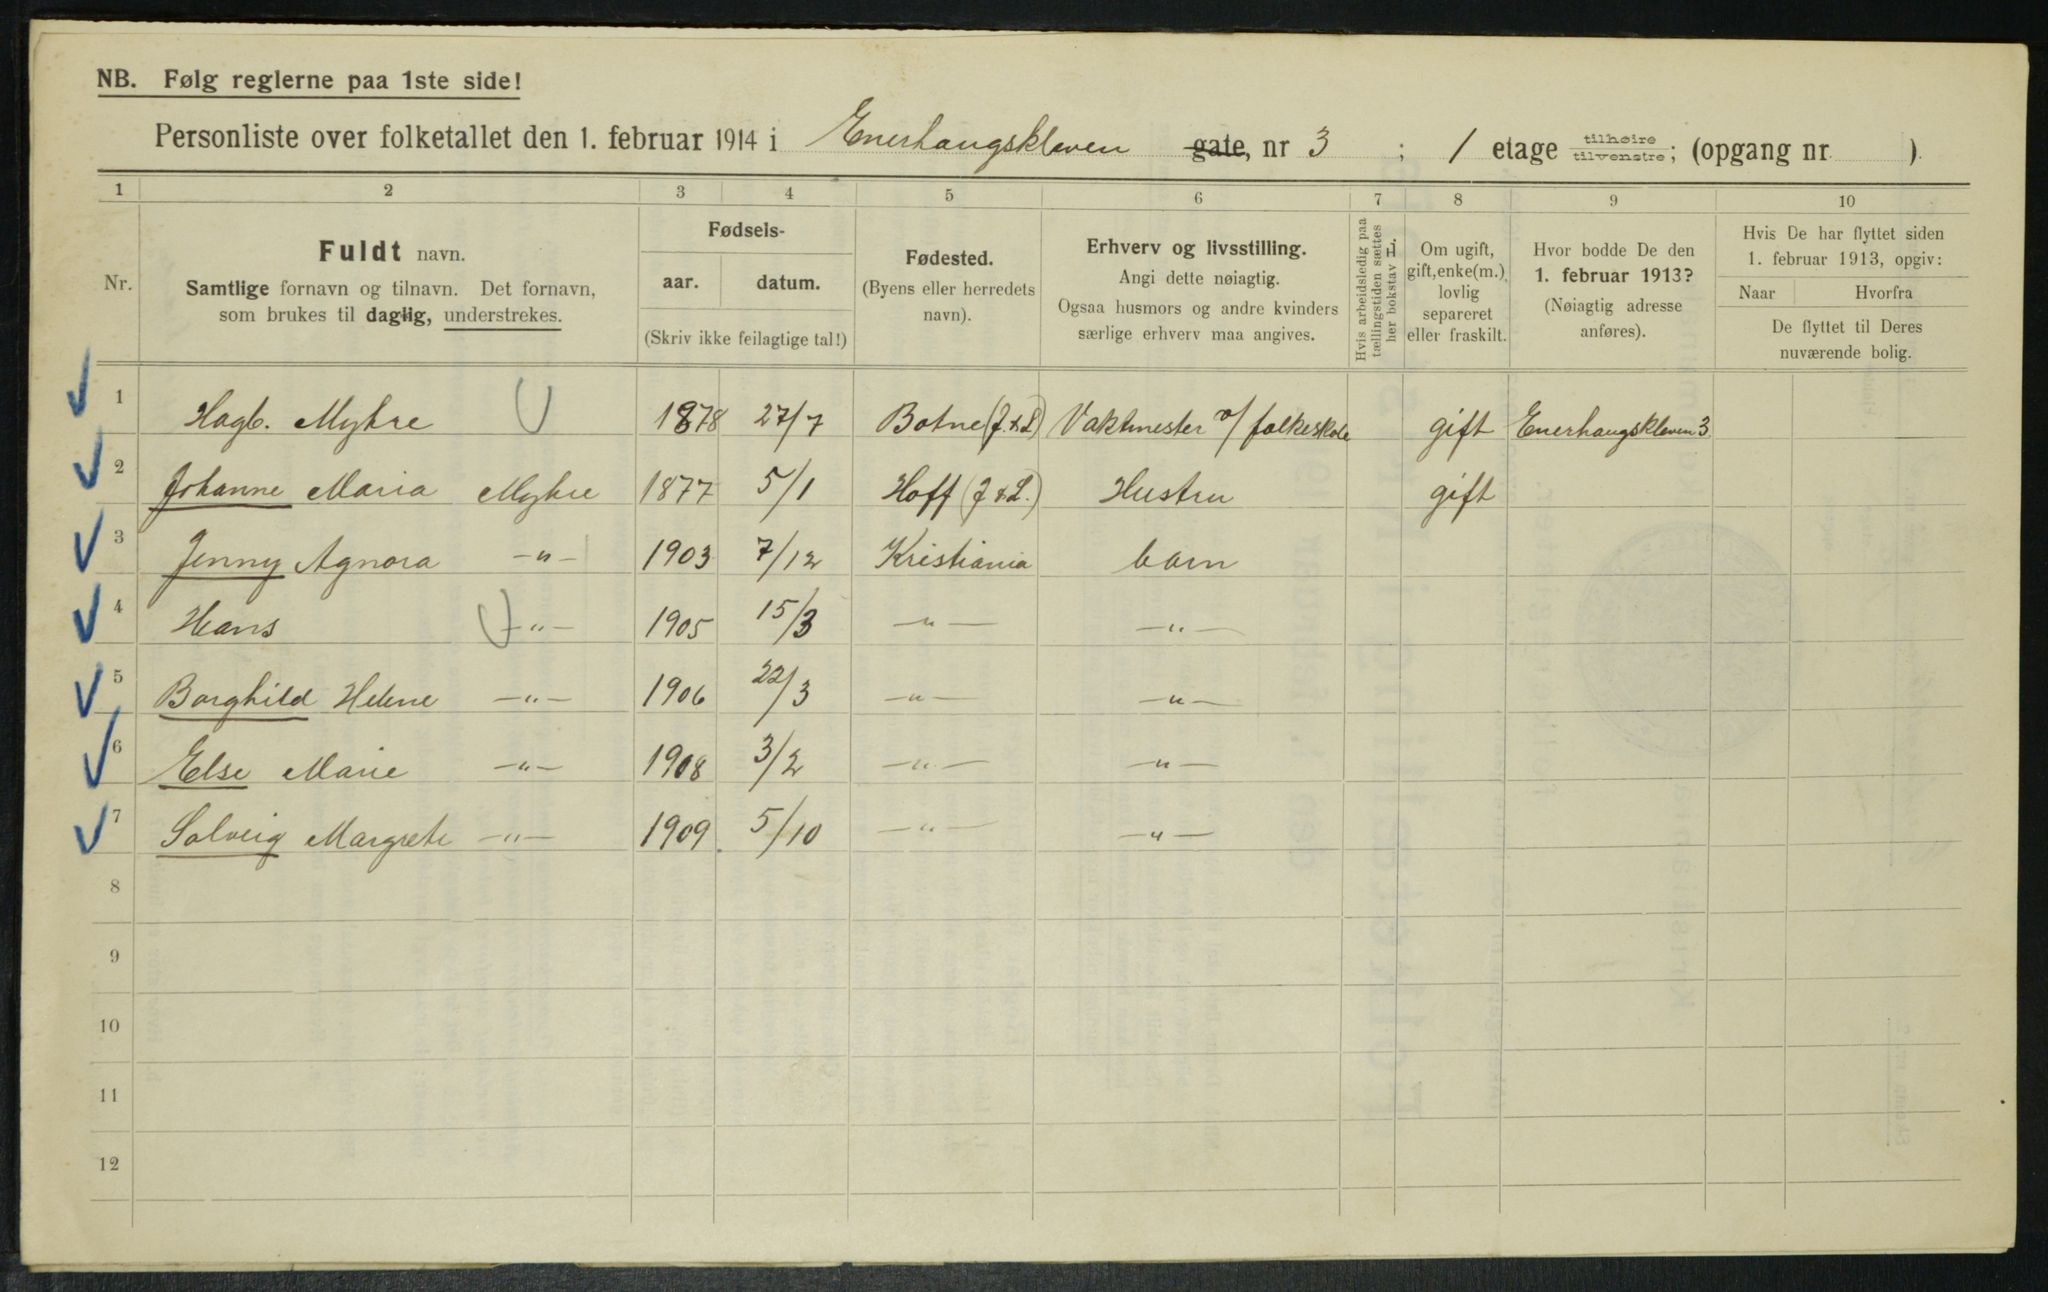 NB. Følg reglerne paa 1ste side!
Personliste over folketallet den 1. februar 1914 i Enerhaugskleven gate, nr 3 ; 1 etage tilhøire tilvenstre; (opgang nr. ).
1 2 3 4 5 6 7 8 9 10
Nr.
Fuldt navn.
Samtlige fornavn og tilnavn. Det fornavn,
som brukes til daglig, understrekes.
Fødsels-
aar. datum.
(Skriv ikke feilagtige tal!)
Fødested.
(Byens eller herredets
navn).
Erhverv og livsstilling.
Angi dette nøiagtig.
Ogsaa husmors og andre kvinders
særlige erhverv maa angives.
Hvis arbeidsledig paa
tællingstiden sættes
her bokstav L.
Om ugift,
gift, enke(m.),
lovlig
separeret
eller fraskilt.
Hvor bodde De den
1. februar 1913?
(Nøiagtig adresse
anføres).
Hvis De har flyttet siden
1. februar 1913, opgiv:
Naar Hvorfra
De flyttet til Deres
nuværende bolig.
1 Hagb. Myhre 1878 27/7 Botne (J. & L) Vaktmester v/ folkeskole gift Enerhaugskleven 3
2 Johanne Maria Myhre 1877 5/1 Hoff (J & L.) Hustru gift
3 Jenny Agnora -"- 1903 7/12 Kristiania barn
4 Hans -"- 1905 15/3 -"- -"-
5 Borghild Helene -"- 1906 22/3 -"- -"-
6 Else Marie -"- 1908 3/2 -"- -"-
7 Solveig Margrete -"- 1909 5/10 -"- -"-
8
9
10
11
12